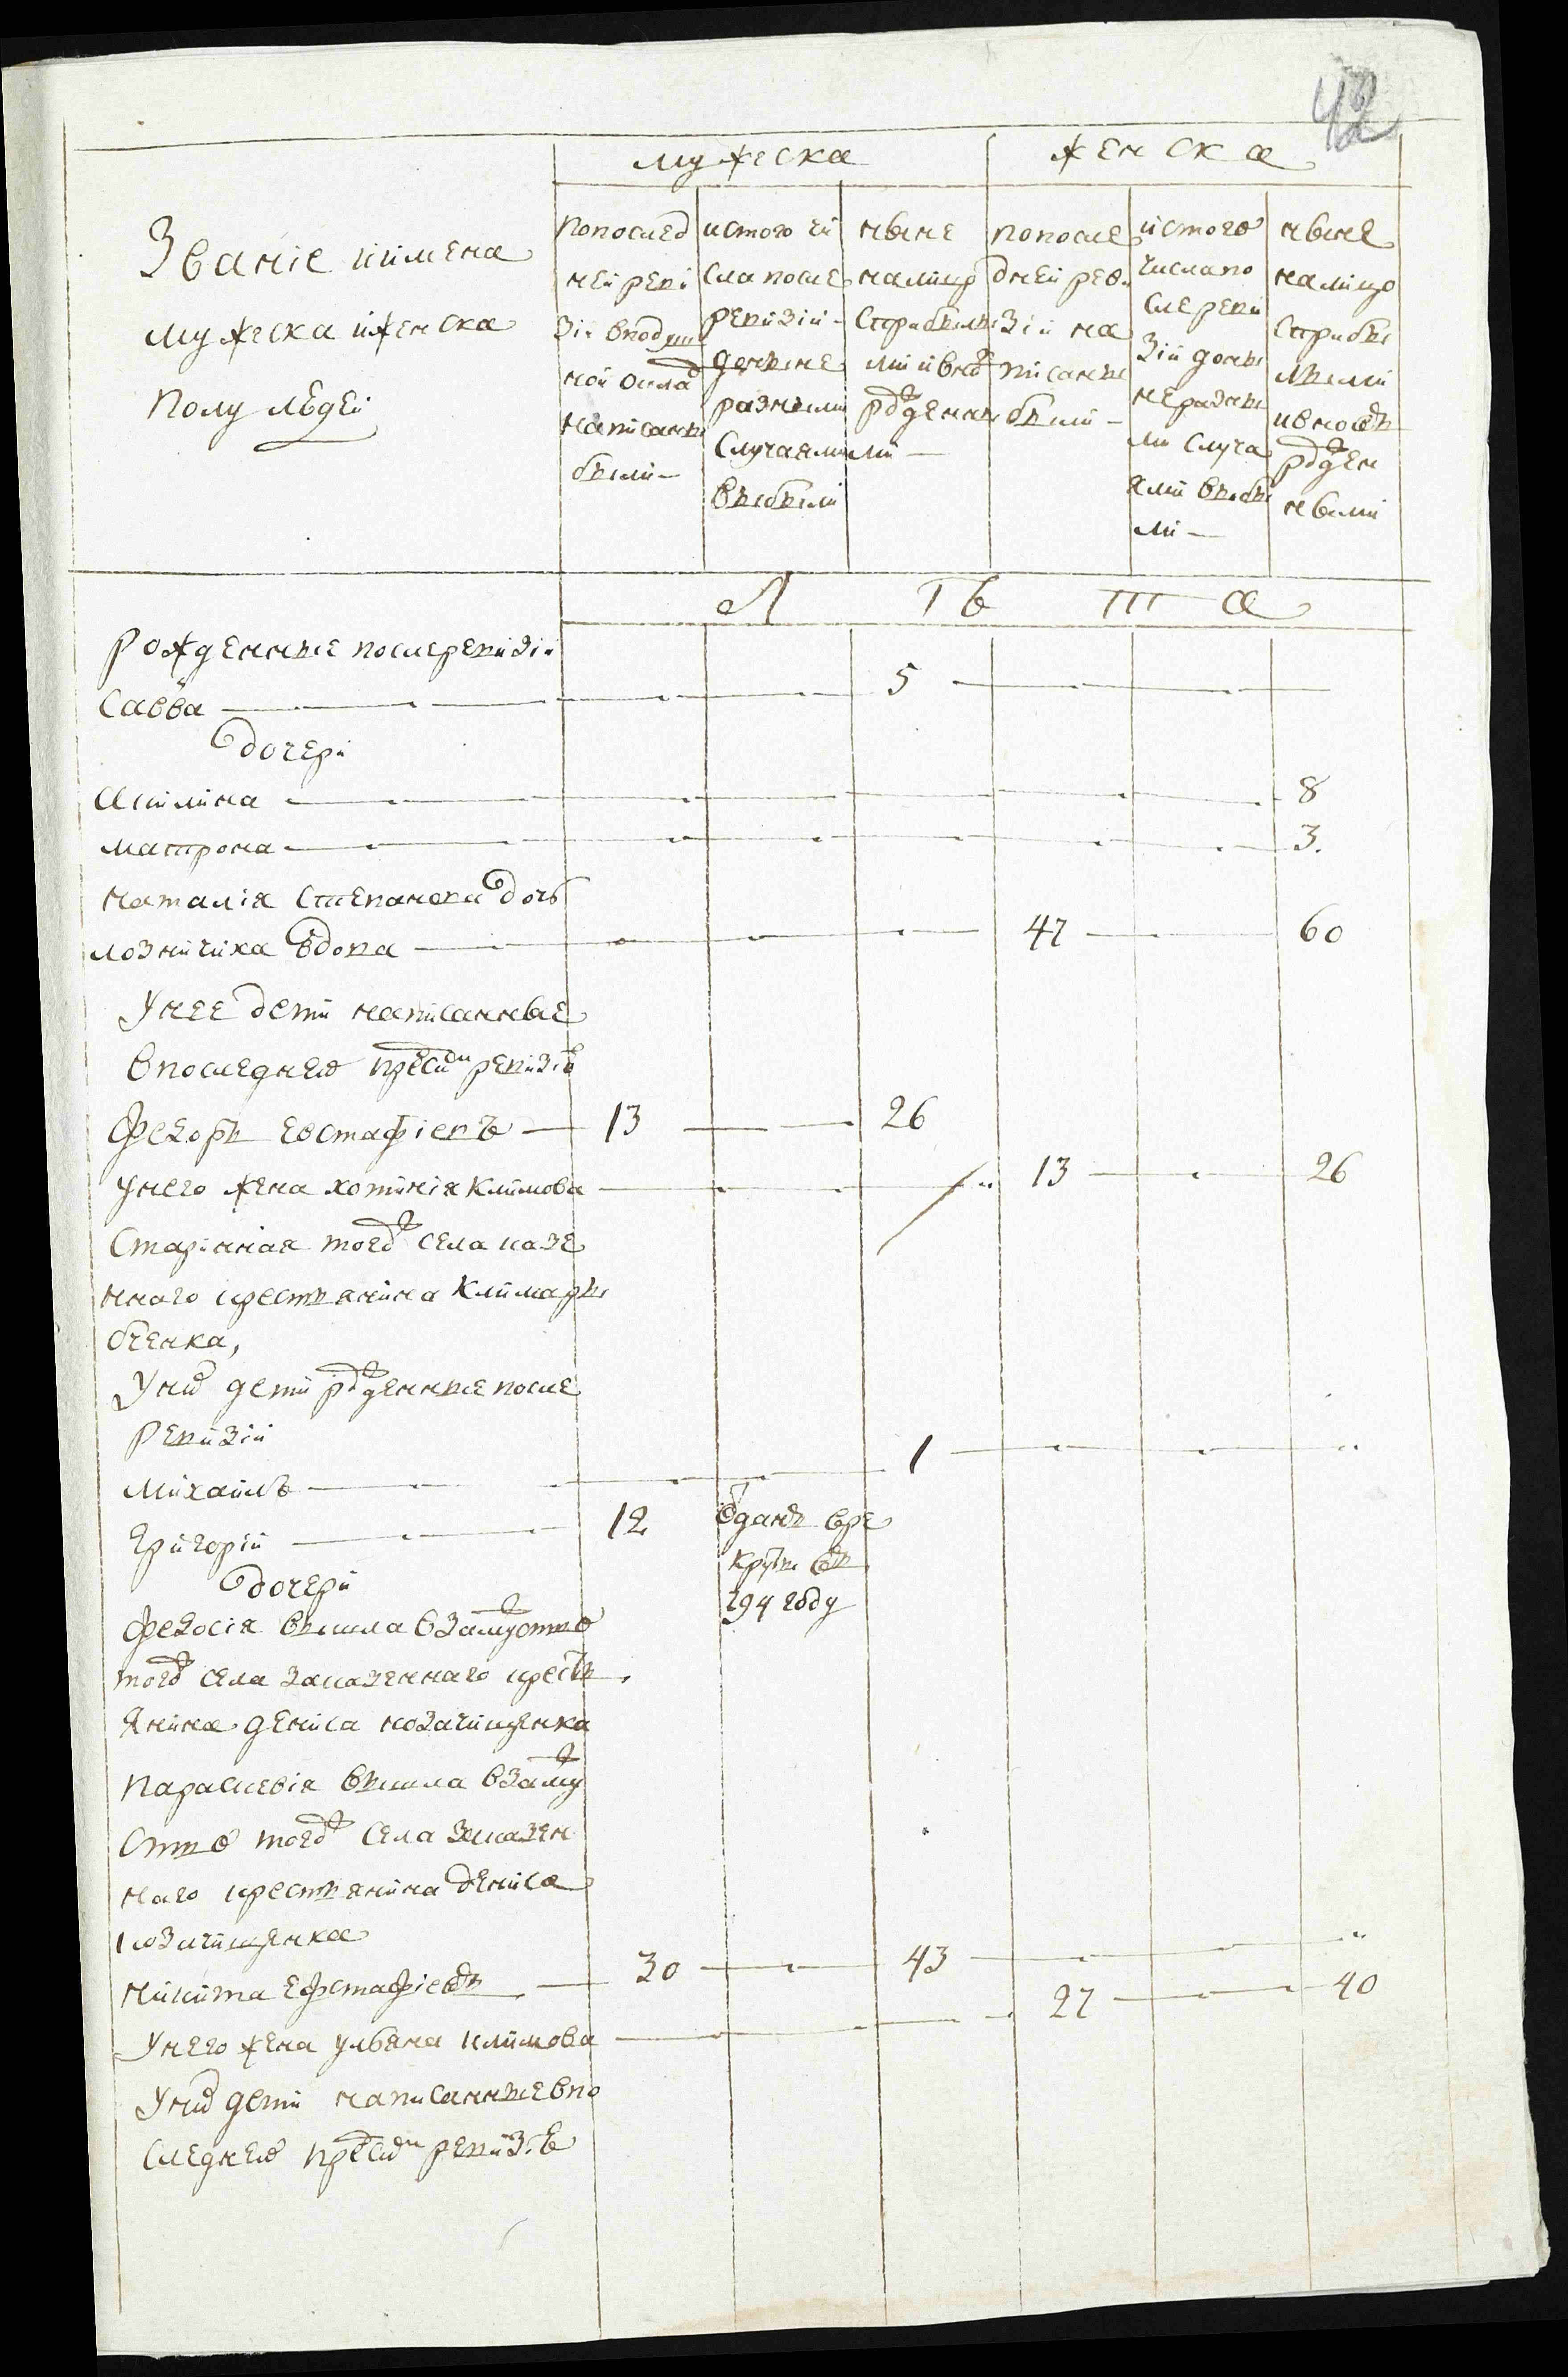 42
мужеска
женска
Званіе иимена
мужеска иженска
полу людей
Попослед
ней реви
зіи вподуш
ной окладъ
написаны
были
истого чи
сла после
ревизіи
доныне
разными
случаями
выбыли
ныне
налицо
сприбылы
ми ивнов
рожденны
ми
попосле
дней реви
зіи на
писаны
были
истого
числапо
слереви
зіи доны
неразны
ми случа
ями выбы
ли
ныне
налицо
сприбы
лыми
ивновъ
рожден
ными
Лѣта
рожденные послеревизіи
Савва 5
дочери
Акилина 8
матрона 3.
наталія Степанова дочь
лозничиха вдова 47 60
Унее дети написанные
впоследней пред сим ревизіи
Федоръ Евстафіевъ 13 26
унего жена хотинія Климова 13 26
Старинная тогож села казе
ннаго крестьянина Климары
бченка,
Уних дети рожденныепосле
Ревизіи
Михаилъ 1
Григорій 12 отданъ вре
круты въ
794 году
дочери
Федосія вышла взамужство
тогож села заказеннаго кресть
янина дениса козачищенка
Параскевія вышла взамуж
ство тогож села заказен
наго крестьянина дениса
козачищенка
никита Ефстафіевъ 30 43
Унего жена ульяна климова 27 40
Уних дети написанныевпо
следней пред сим ревизіѣ